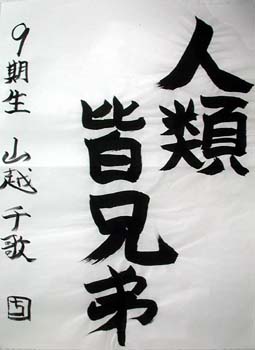 人類
皆兄弟
9期生 山越千歌